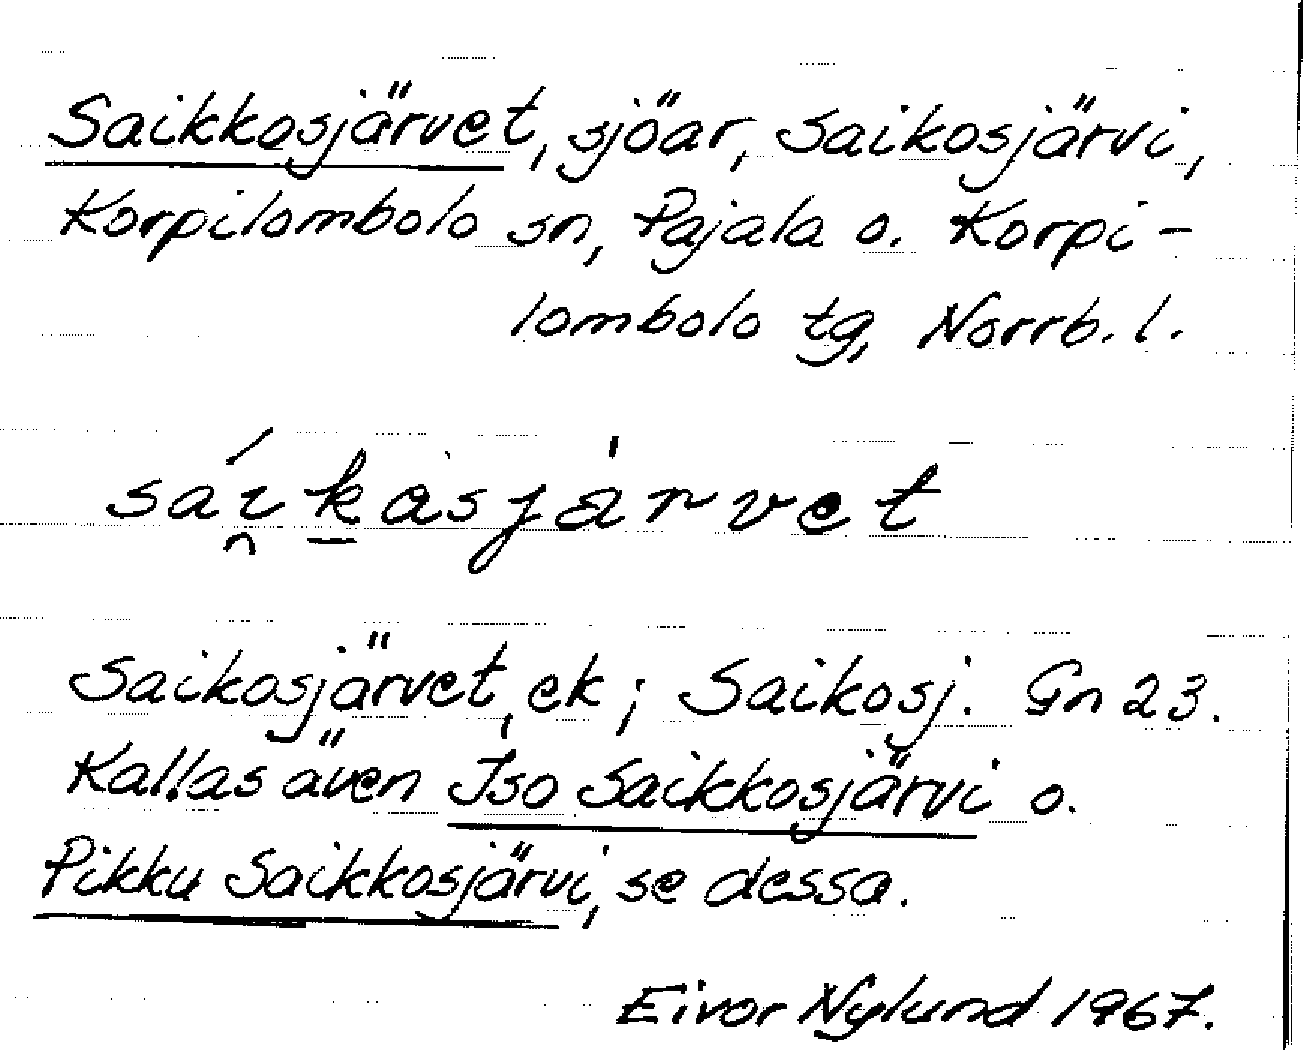 Saikkosjärvet, sjöar, Saikosjärvi,
Korpilombolo sn, Pajala o. Korpi-
lombolo tg, Norrb. l.
saíkasjàrvet
Saikosjärvet, ek; Saikosj. Gn 23.
Kallas även Iso Saikkosjärvi o.
Pikku Saikkosjärvi, se dessa.
Eivor Nylund 1967.